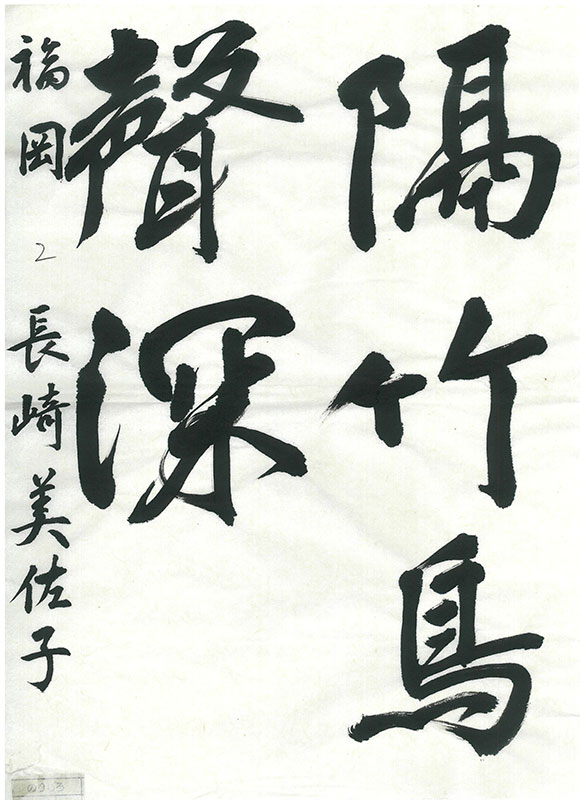 隔竹鳥
聲深
福岡 2 長崎美佐子